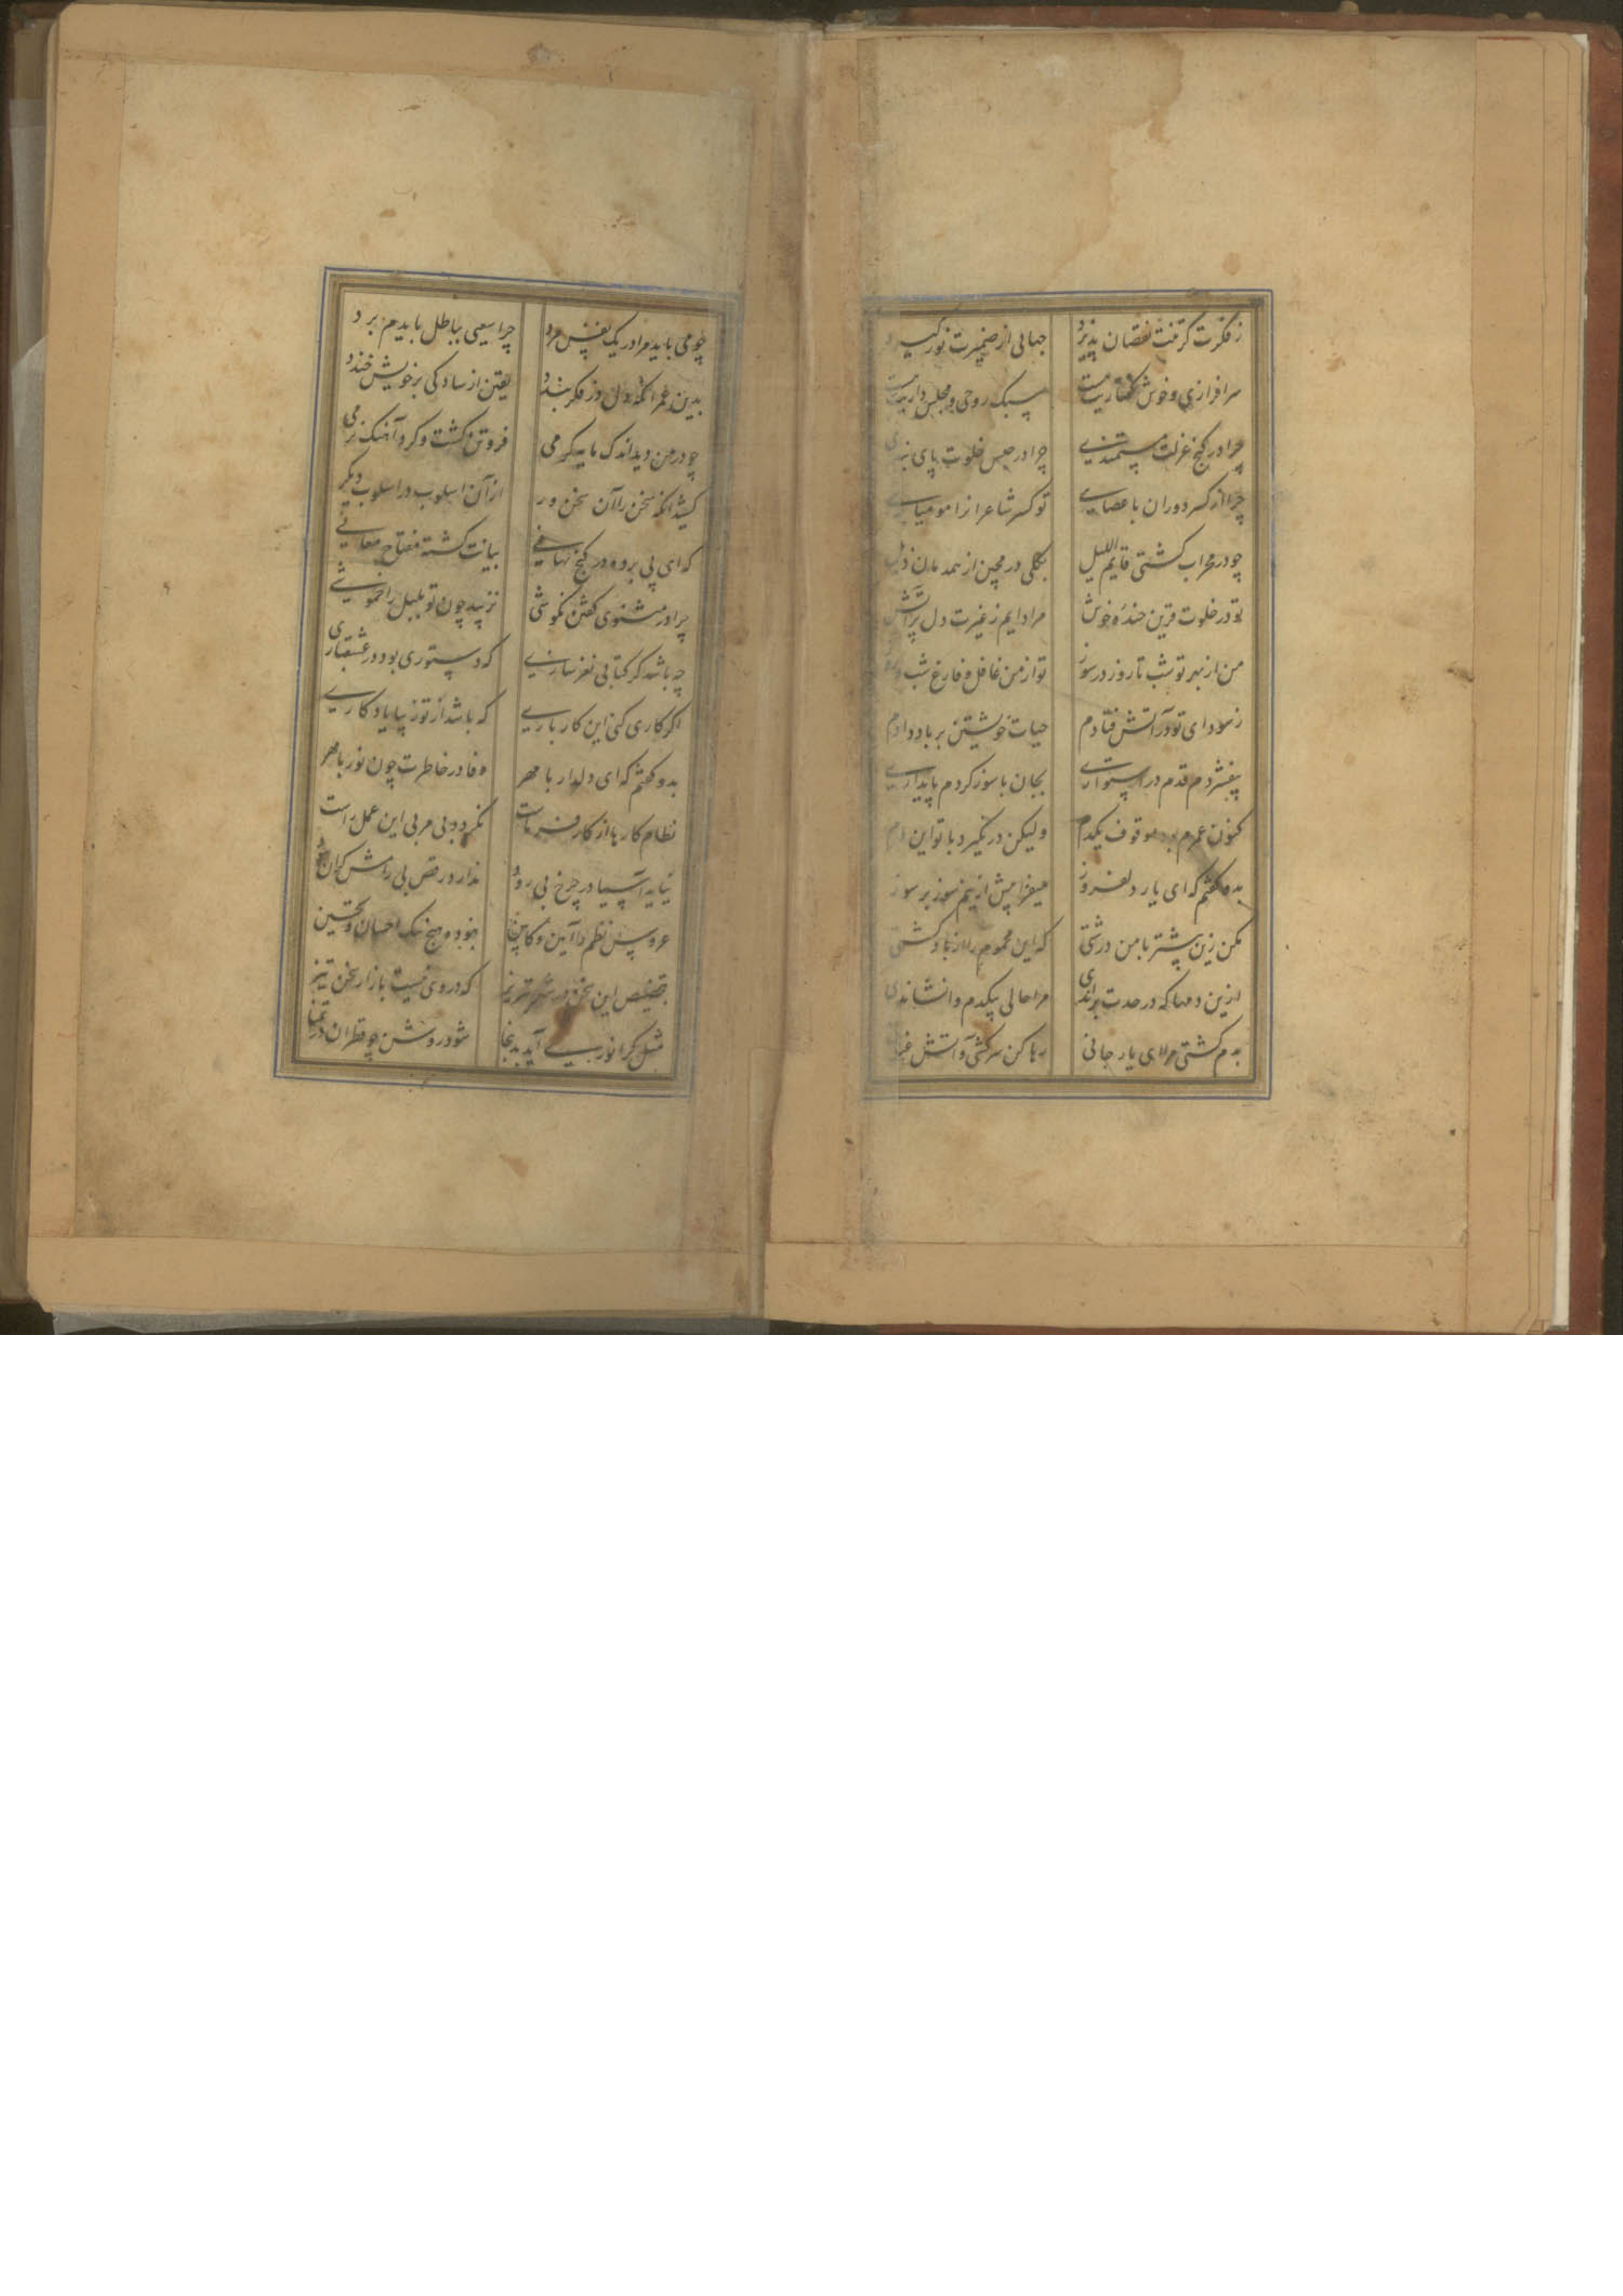 ز فکرت گرفت نقصان پذیرد جهانی از ضمیرت نور گیرد
سرافرازی و خوش گفتاریت هست سبک روحی و مجلس داریت هست
چرا در کنج عزلت مستمندی چرا در حبس خلوت پای بندی
چرا از کسر دوران با عصایی تو کسر شاعرانرا مومیایی
چو در محراب گشتی قایم اللیل بکلی در مچین از همدمان ذیل
تو در خلوت قرین خنده خوش مرا دایم ز غیرت دل پرآتش
من از بهر تو شب تا روز در سوز تو از من غافل و فارغ شب و روز
ز سودای تو در آتش فتادم حیات خویشتن بر باد دادم
بیفشردم قدم در استواری بجان با سوز کردم پایداری
کنون عمرم بود موقوف یکدم ولیکن در نگیرد با تو این دم
بدو گفتم که ای یار دلفروز میفزا بیش ازینم سوز بر سوز
مکن زین بیشتر با من درشتی که این محموم را از باد کشتی
ازین دمها که در حدت براندی مرا حالی بیکدم وانشاندی
بدم کشتی مرا ای یار جانی رها کن سرکشی و آتش
چو می باید مرا در یک نفس مرد چرا سعیی بباطل بایدم برد
بدین عمر آنکه دل در فکر بندد یقین از سادگی بر خویش خندد
چو در من دید اندک مایه گرمی فروتن گشت و کرد آهنگ نرمی
کشید آنگه سخن را آن سخن ور از آن اسلوب در اسلوب دیگر
که ای پی برده در کنج نهانی بیانت گشته مفتاح معانی
چرا در مثنوی گفتن نکوشی نزیبد چون تو بلبل را خموشی
چه باشد گر کتابی نغز سازی که دستوری بود در عشقبازی
اگر کاری کنی این کار باری که باشد از تو زیبا یادگاری
بدو گفتم که ای دلدار با مهر وفا در خاطرت چون نور با مهر
نظام کارها از کارفرماست نگردد بی مربی این عمل راست
نیاید آسیا در چرخ بی رود ندارد رقص بی رامش گران
عروس نظم را آیین و کابین نبوده هیچ نیک احسان و تحسین
بتخصیص این سخن در شهر تبریز که در وی نیست بازار سخن تیز
مثل گر انوری آید بدنجا شود روشن چو قطران در